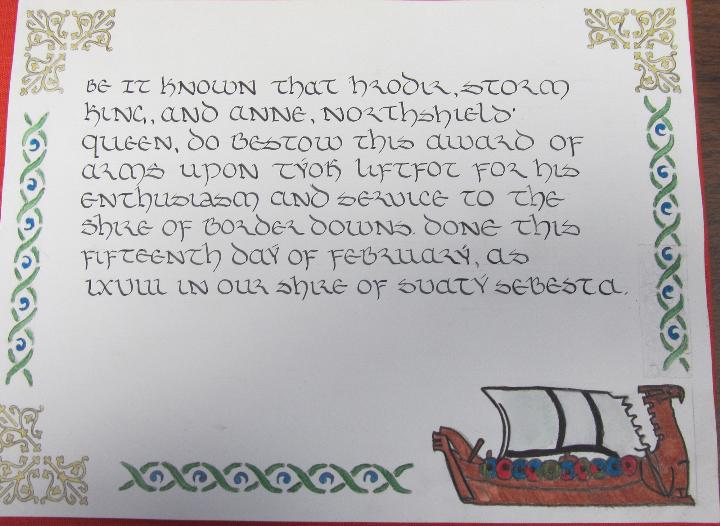 BE IT KNOWN THAT HRODIR, STORM
KING, AND ANNE, NORTHSHIELD'
QUEEN, DO BESTOW THIS AWARD OF
ARMS UPON TÝOK LIFTFOT FOR HIS
ENTHUSIASM AND SERVICE TO THE
SHIRE OF BORDER DOWNS. DONE THIS
FIFTEENTH DAY OF FEBRUARÝ, AS
LXVIII IN OUR SHIRE OF SVATÝ SEBESTA.